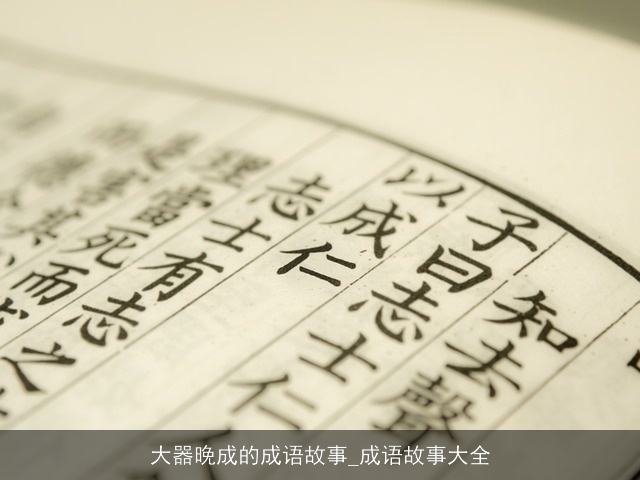 知去聲
子曰志士仁
以成仁
志士有志之
理當死而
大器晚成的成语故事_成语故事大全